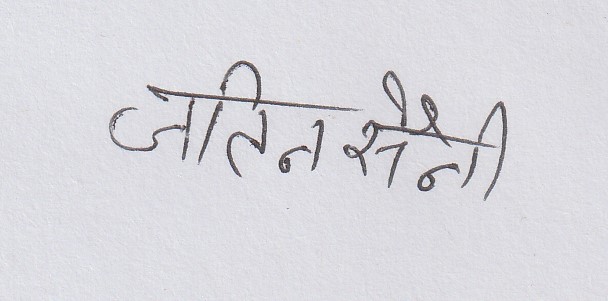 जतिन सैनी